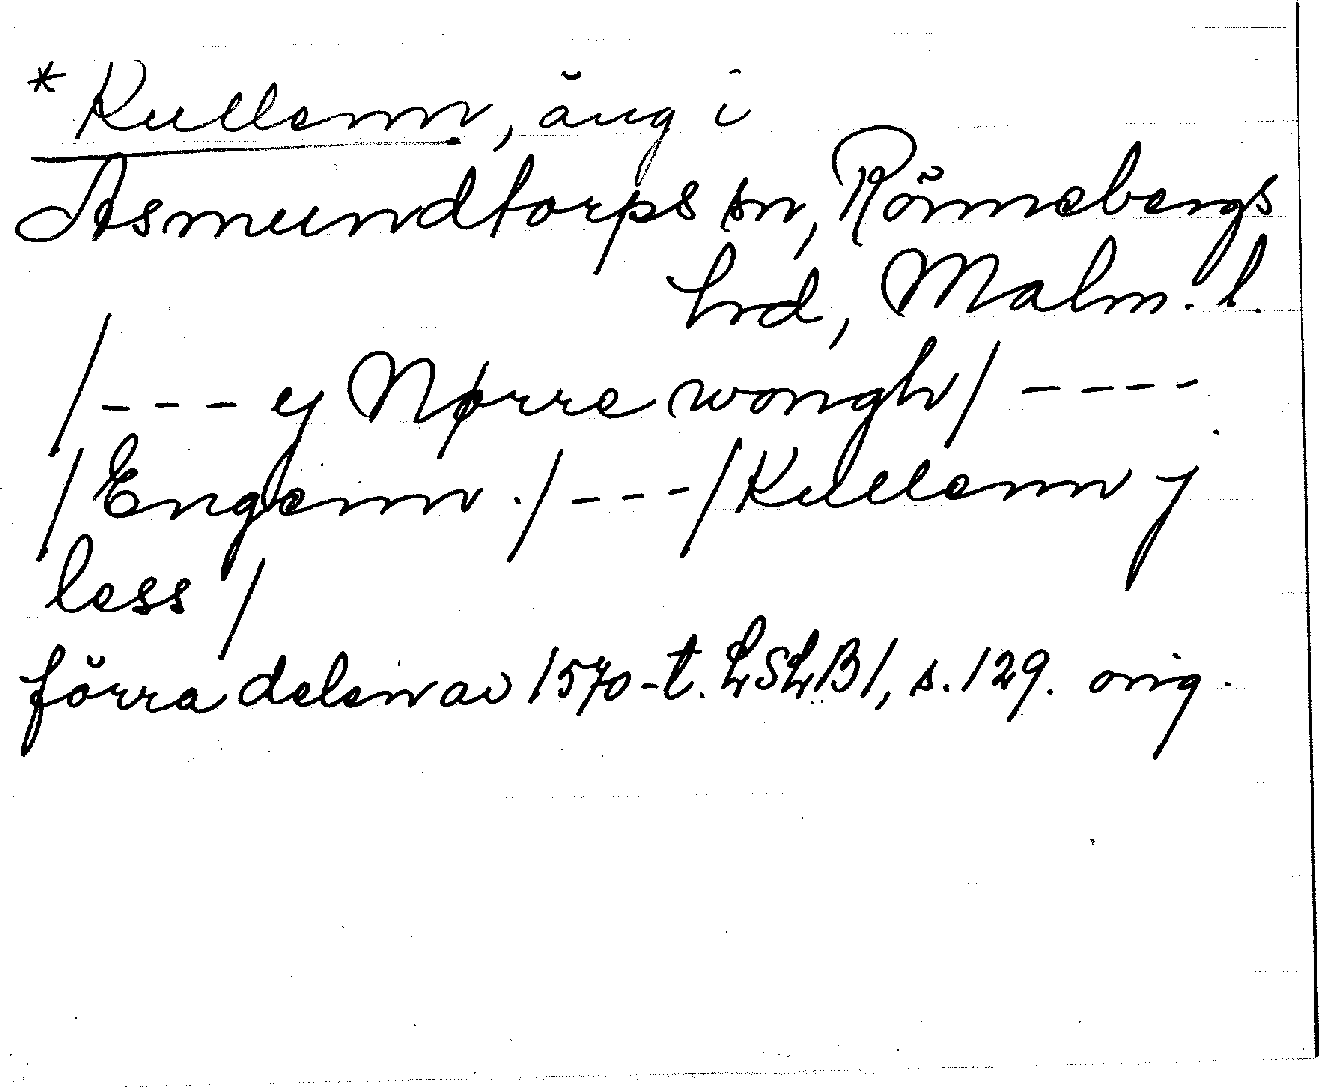 * Kullenn, äng i
Asmundtorps sn, Rönnebergs
hrd, Malm. l.
/--- y Nørre wongh/ ----
/Engenn ./ ---/Kullenn j
less/
förra delen av 1570-t. LSLB1, s. 129. orig.